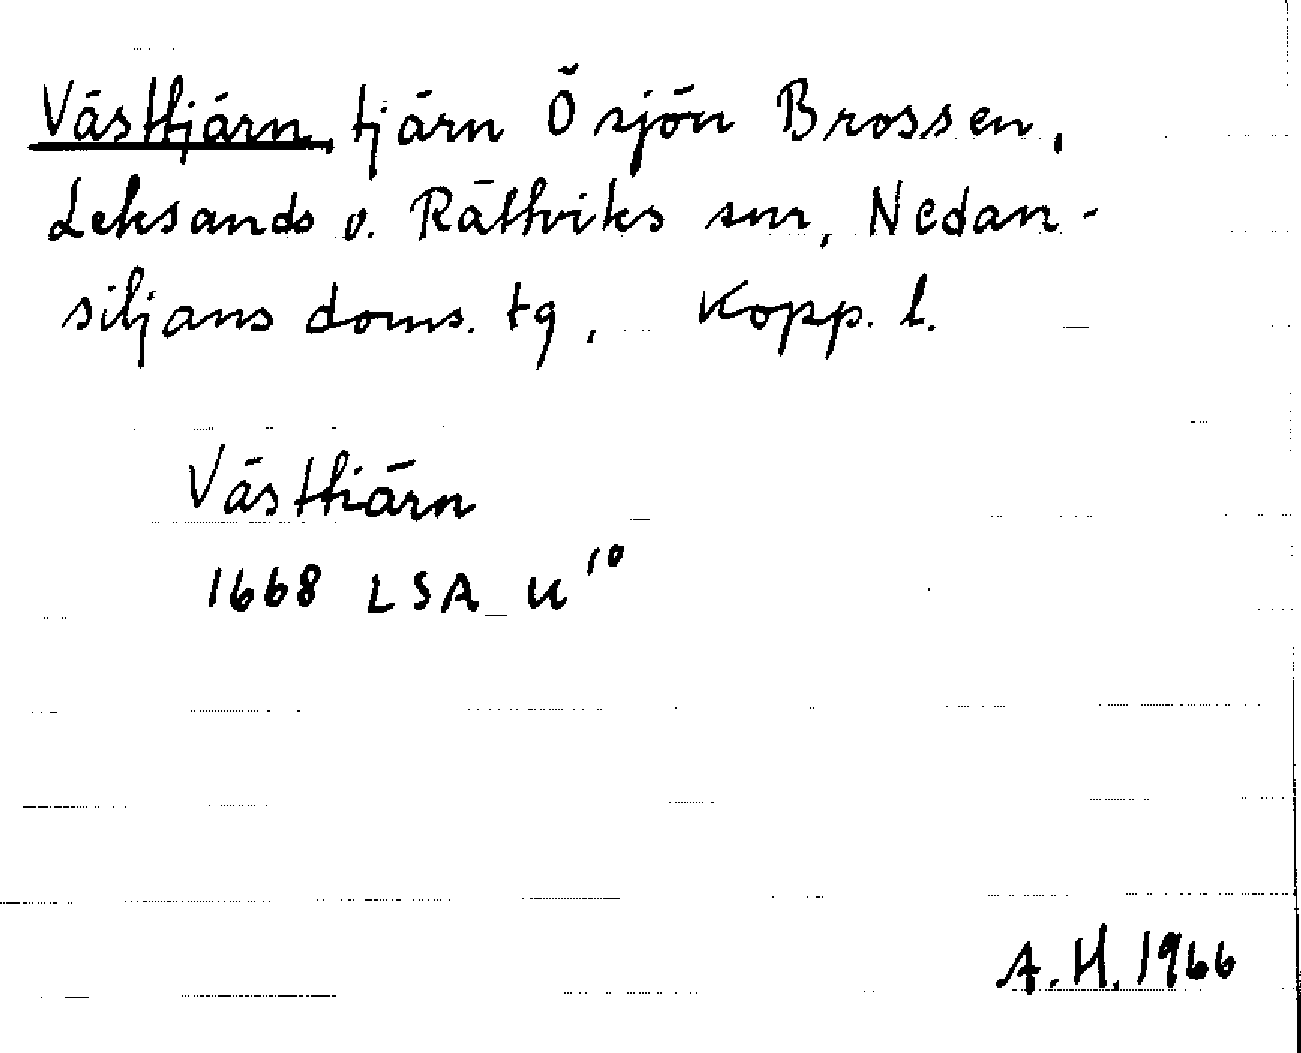 Västtjärn, tjärn Ö sjön Brossen,
Leksands o. Rättviks snr, Nedan-
siljans doms. tg, Kopp. l.
Västtiärn
1668 LSA U¹⁰
A.H. 1966